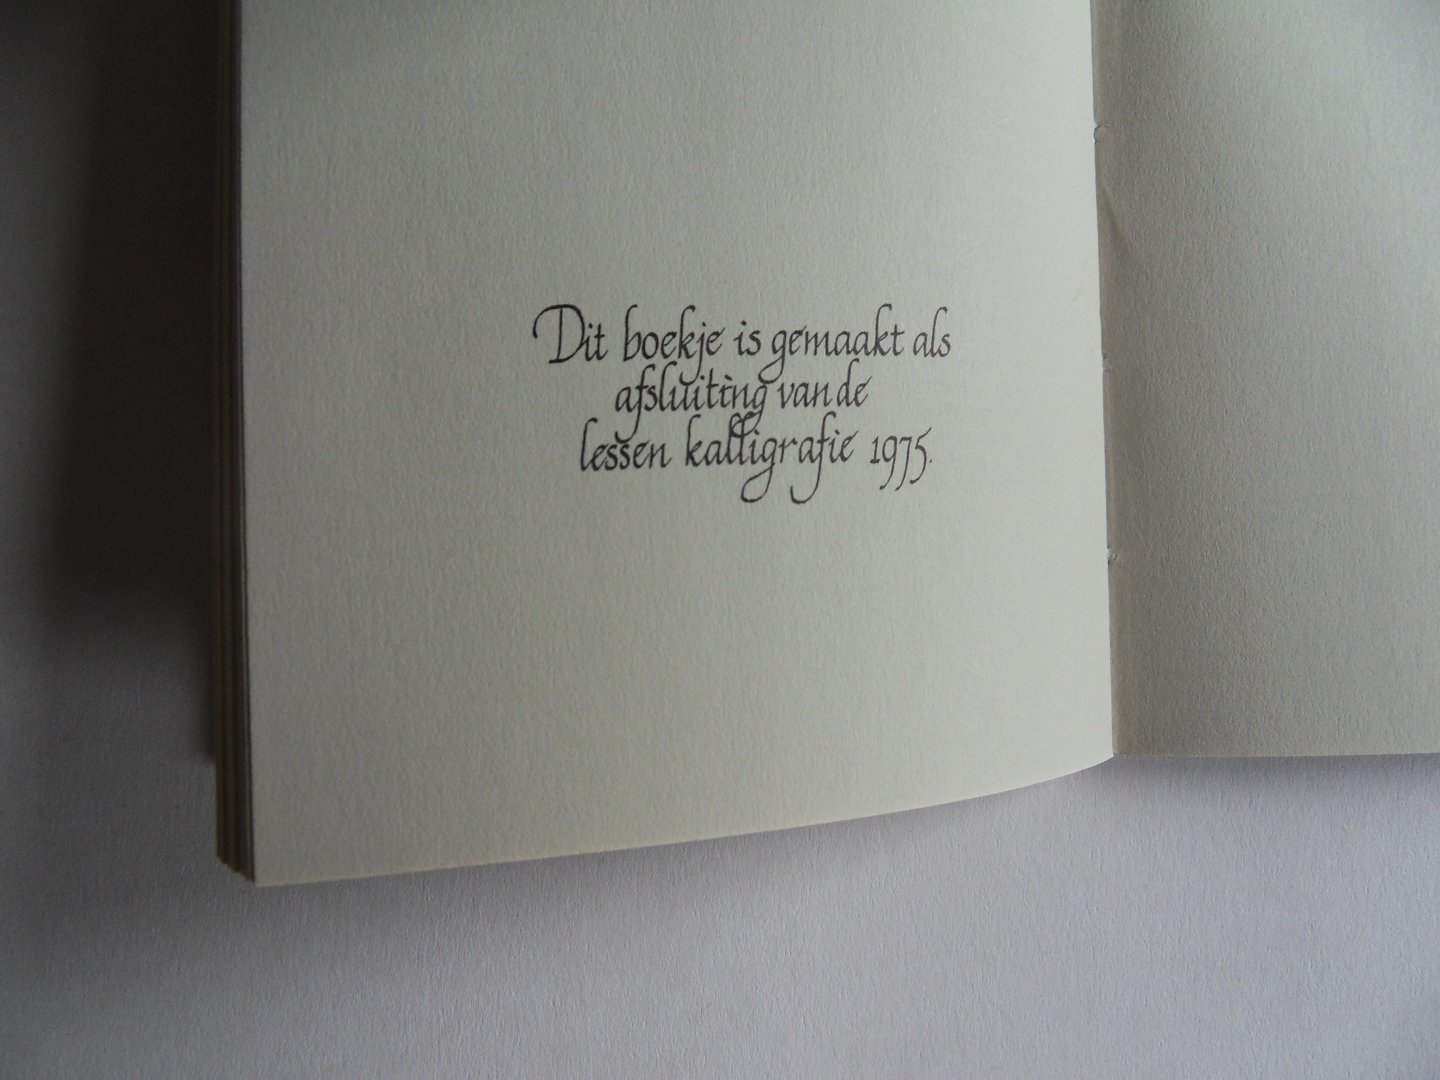 Dit boekje is gemaakt als
afsluiting van de
lessen kalligrafie 1975.